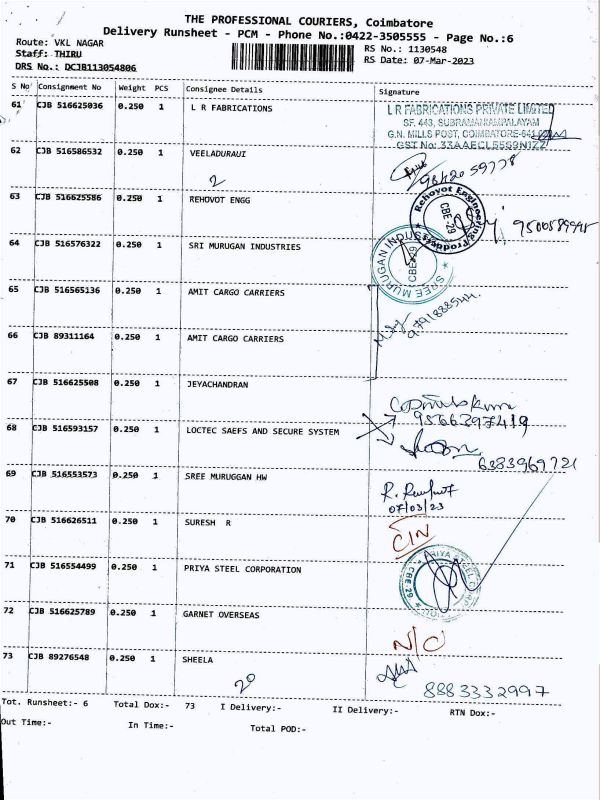 THE PROFESSIONAL COURIERS, Coimbatore
Delivery Runsheet - PCM - Phone No.:0422-3505555 - Page No.:6
Route: VKL NAGAR
RS No.: 1130548
Staff: THIRU
RS Date: 07-Mar-2023
DRS No.: DCJB113054806
S No Consignment No Weight PCS Consignee Details Signature
61 CJB 516625036 0.250 1 L R FABRICATIONS
L R FABRICATIONS PRIVATE LIMITED
SF. 443, SUBRAMANIAMPALAYAM
G.N. MILLS POST, COIMBATORE-641
62 CJB 516586532 0.250 1 VEELADURAUI
2
63 CJB 516625586 0.250 1 REHOVOT ENGG
Rehovot Engineering Products
CBE-29
64 CJB 516576322 0.250 1 SRI MURUGAN INDUSTRIES
SREE MURUGAN INDUSTRIES
CBE-29
65 CJB 516565136 0.250 1 AMIT CARGO CARRIERS
66 CJB 89311164 0.250 1 AMIT CARGO CARRIERS
67 CJB 516625508 0.250 1 JEYACHANDRAN
9566397419
68 CJB 516593157 0.250 1 LOCTEC SAEFS AND SECURE SYSTEM
6383969721
69 CJB 516553573 0.250 1 SREE MURUGGAN HW
07/03/23
70 CJB 516626511 0.250 1 SURESH R
CIN
71 CJB 516554499 0.250 1 PRIYA STEEL CORPORATION
PRIYA STEEL CORPORATION
CBE 29
72 CJB 516625789 0.250 1 GARNET OVERSEAS
N/C
73 CJB 89276548 0.250 1 SHEELA
20
8883332997
Tot. Runsheet:- 6 Total Dox:- 73 I Delivery:- II Delivery:- RTN Dox:-
Out Time:- In Time:- Total POD:-